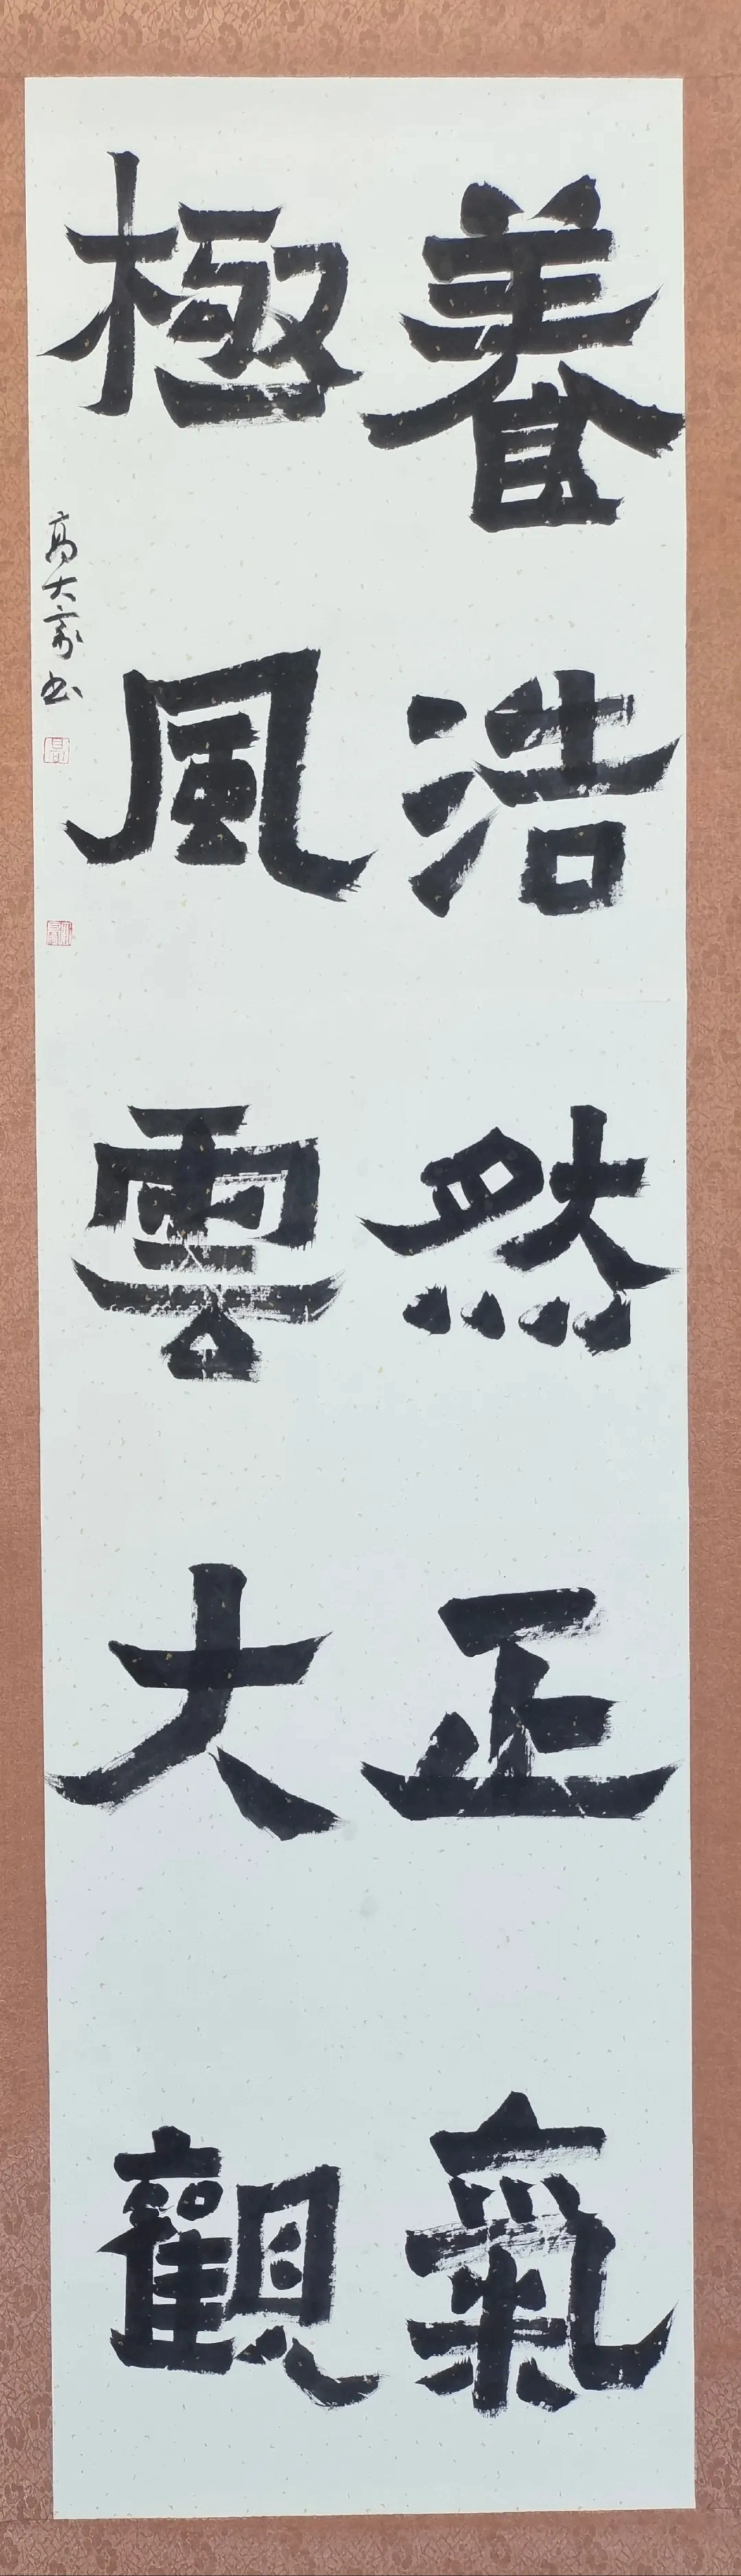 養浩然正氣
極風雲大觀
高大家书